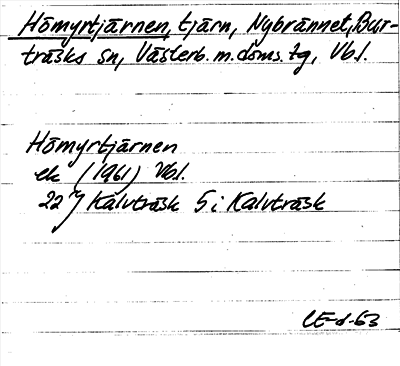 Hömyrtjärnen, tjärn, Nybrännet, Bur-
träsks sn, Västerb. m. doms. tg, Vbl.
Hömyrtjärnen
ek (1961) Vbl.
22 J Kalvträsk 5 i Kalvträsk
CE-d-63